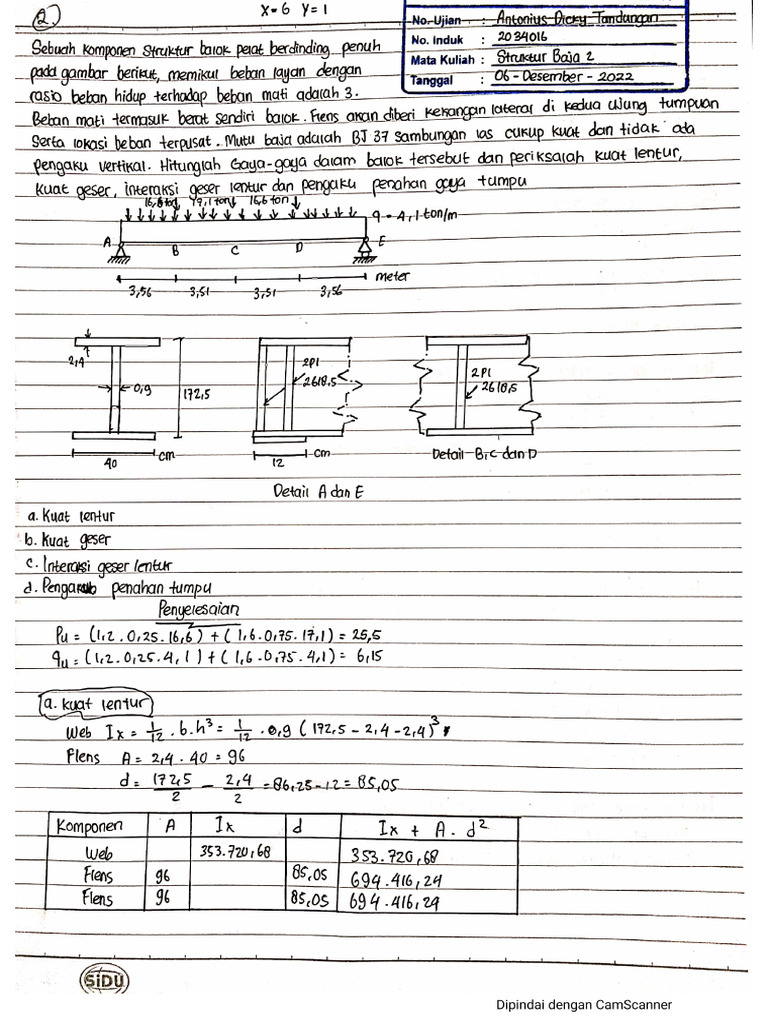 2.
X = 6 Y = 1
No. Ujian : Antonius Dicky Tandungan
No. Induk : 2034016
Mata Kuliah : Struktur Baja 2
Tanggal : 06 - Desember - 2022
Sebuah Komponen Struktur balok pelat berdinding penuh
pada gambar berikut, memikul beban layan dengan
rasio beban hidup terhadap beban mati adalah 3.
Beban mati termasuk berat sendiri balok. Flens akan diberi kekangan lateral di kedua ujung tumpuan
Serta lokasi beban terpusat. Mutu baja adalah BJ 37 sambungan las cukup kuat dan tidak ada
pengaku vertikal. Hitunglah Gaya-gaya dalam balok tersebut dan periksalah kuat lentur,
Kuat geser, interaksi geser lentur dan pengaku penahan gaya tumpu
16,6 ton 17,1 ton 16,6 ton
q = 4,1 ton/m
A B C D E
meter
3,56 3,51 3,51 3,56
2,4
0,9
172,5
40 cm
2Pl
2618,5
12 cm
2Pl
2618,5
Detail B,C dan D
Detail A dan E
a. Kuat lentur
b. Kuat geser
c. Interaksi geser lentur
d. Pengaku penahan tumpu
Penyelesaian
Pu = (1,2 . 0,25 . 16,6) + (1,6 . 0,75 . 17,1) = 25,5
qu = (1,2 . 0,25 . 4,1) + (1,6 . 0,75 . 4,1) = 6,15
a. kuat lentur
Web Ix = 1/12 . b . h³ = 1/12 . 0,9 (172,5 - 2,4 - 2,4)³
Flens A = 2,4 . 40 = 96
d = 172,5/2 - 2,4/2 = 86,25 - 12 = 85,05
Komponen A Ix d Ix + A . d²
Web 353.720,68 353.720,68
Flens 96 85,05 694.416,24
Flens 96 85,05 694.416,24
SiDU
Dipindai dengan CamScanner